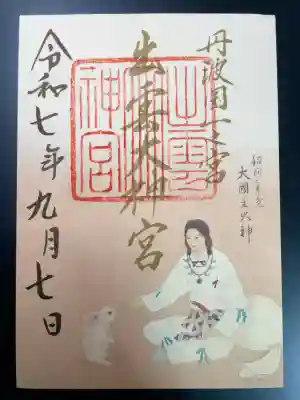 丹波國一之宮
出雲大神宮
出雲
神宮
大國主大神
令和七年九月七日